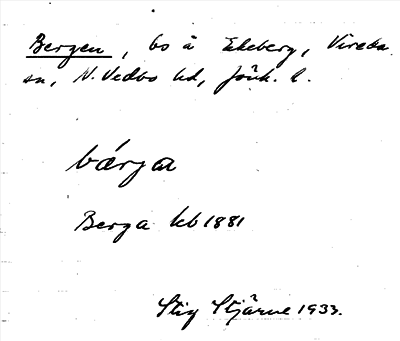 Bergen, bs å Ekeberg, Vireda
sn, N. Vedbo hd, Jönk. l.
bærga
Berga kb 1881
Stig Stjärne 1933.